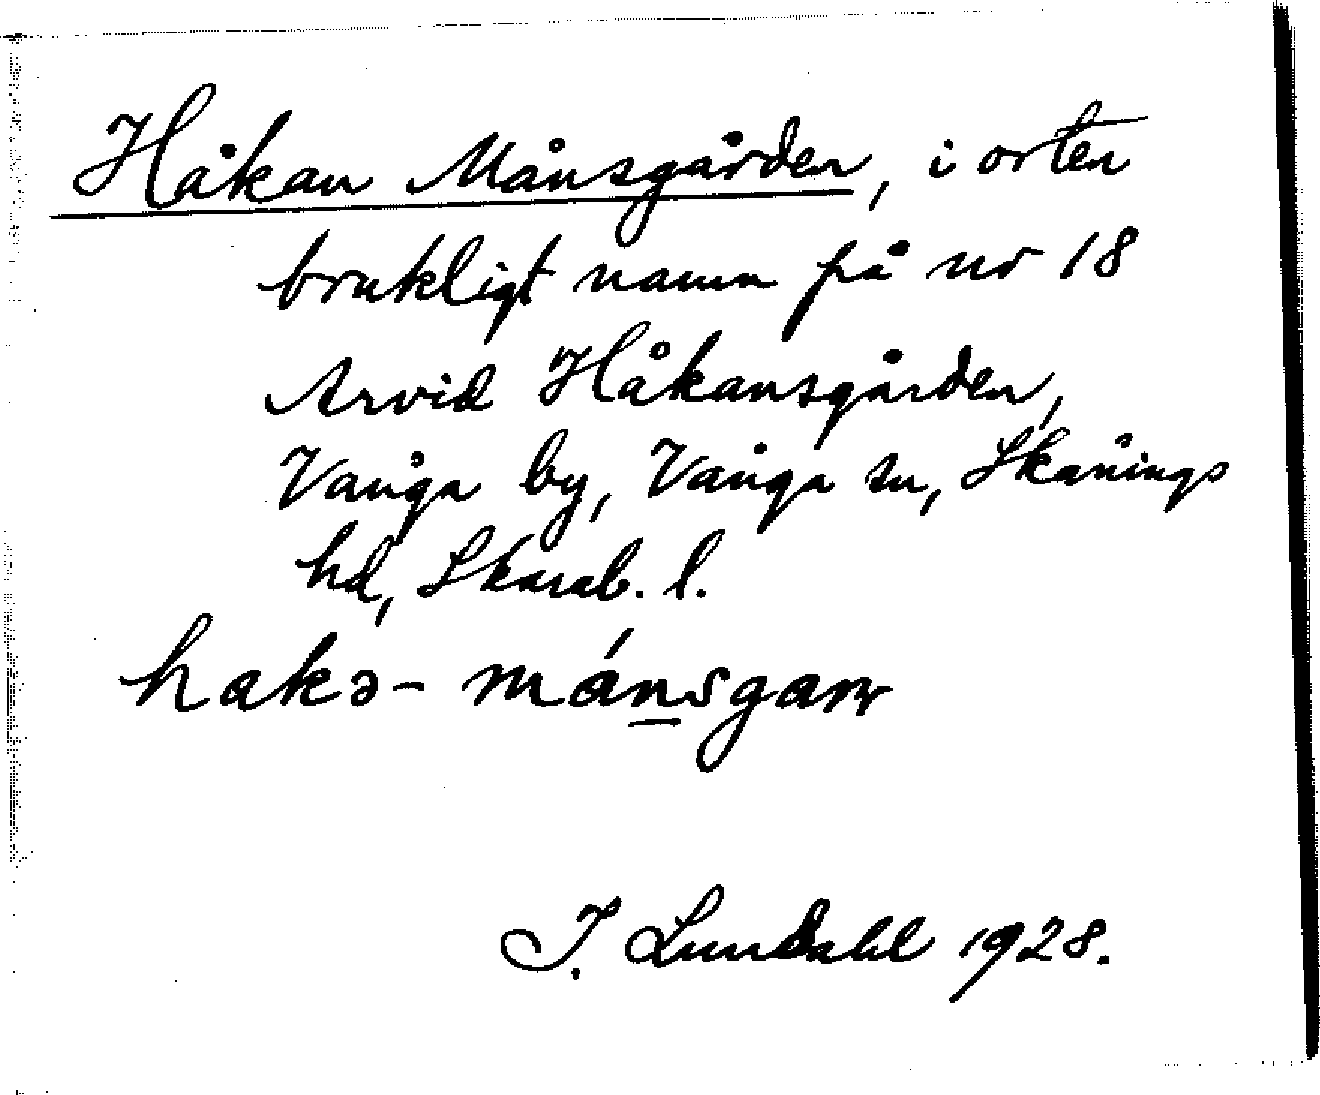 Håkan Månsgården, i orten
brukligt namn på nr 18
Arvid Håkansgården,
Vånga by, Vånga sn, Skånings
hd, Skarab. l.
hakə- mánsgaɴ
I. Lundahl 1928.